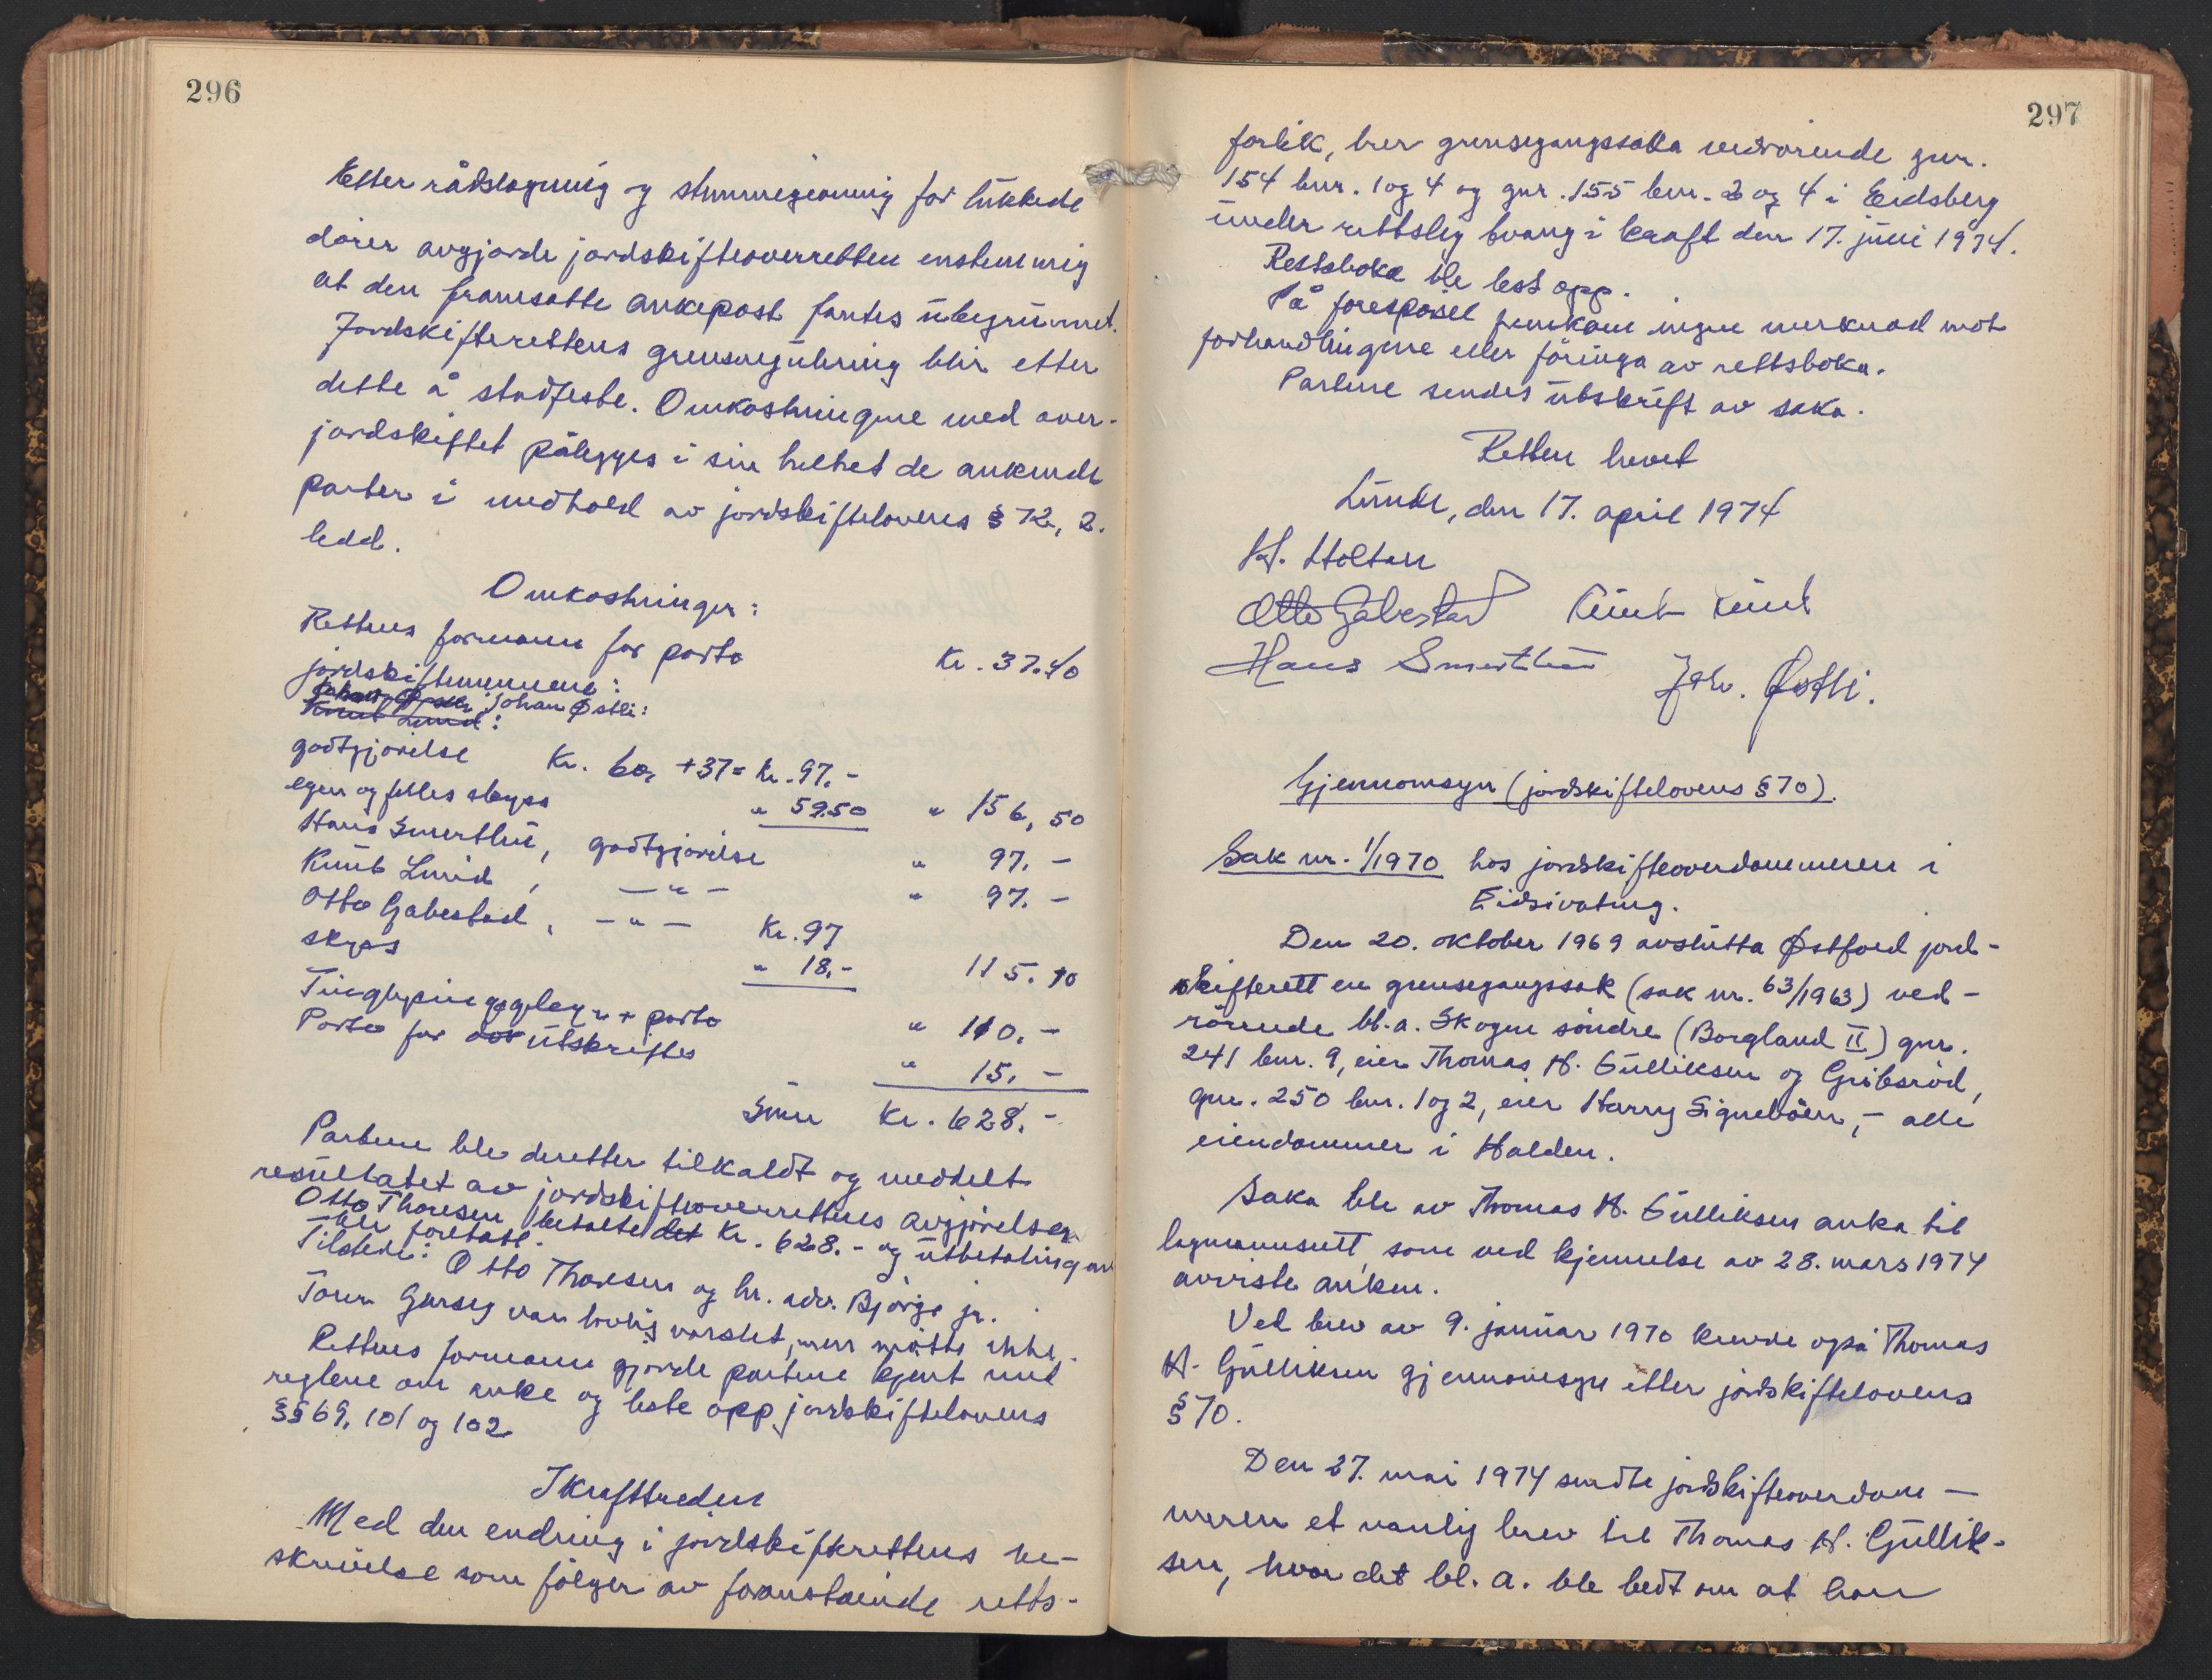 296
Etter rådslagning og stemmegivning for lukkede
dører avgjorde jordskifteoverretten enstemmig
at den framsatte ankepost fantes ubegrunnet.
Jordskifterettens grenseregulering blir etter
dette å stadfeste. Omkostningene med over-
jordskiftet pålegges i sin helhet de ankende
parter i medhold av jordskiftelovens § 72, 2.
ledd.
Omkostninger:
Rettens formann for porto Kr. 37.40
jordskiftemennene:
Johan Østli:
Knut Lund:
godtgjørelse Kr. 60, +37= kr. 97.-
egen og felles skyss " 59.50 " 156,50
Hans Smerthu, godtgjørelse " 97.-
Knut Lund, -"- " 97.-
Otto Gabestad, -"- Kr. 97
skyss " 18.- 115.10
Tinglysingsgebyr + porto " 110.-
Porto for utskrifter " 15.-
Sum Kr. 628.-
Partene ble deretter tilkaldt og meddelt
resultatet av jordskifteoverrettens avgjørelser
Otto Thoresen betalte det kr. 628.- og utbetaling av
ble foretatt.
Tilstede: Otto Thoresen og hr. adv. Bjørge jr.
var lovlig varslet, men møtte ikke.
Rettens formann gjorde partene kjent med
reglene om anke og leste opp jordskiftelovens
§§ 69, 101 og 102
Ikrafttreden
Med den endring i jordskifterettens be-
skrivelse som følger av foranstående retts-
297
forlik, trer grensegangssaka vedrørende gnr.
154 bnr. 1 og 4 og gnr. 155 bnr. 2 og 4 i Eidsberg
under rettslig tvang i kraft den 17. juni 1974.
Rettsboka ble lest opp.
På forespørsel framkom ingen merknad mot
forhandlingene eller føringa av rettsboka.
Partene sendes utskrift av saka.
Retten hevet
Lunde, den 17. april 1974
H. Holtan
Otto Gabestad Knut Lund
Hans Smerthu Joh. Østli.
Gjennomsyn (jordskiftelovens § 70).
Sak nr. 1/1970 hos jordskifteoverdommeren i
Eidsivating.
Den 20. oktober 1969 avslutta Østfold jord-
skifterett en grensegangssak (sak nr. 63/1963) ved-
rørende bl.a. Skogen søndre (Borgland II) gnr.
241 bnr. 9, eier Thomas H. Gulliksen og Gribsrød,
gnr. 250 bnr. 1 og 2, eier Harry Signebøen, - alle
eiendommer i Halden.
Saka ble av Thomas H. Gulliksen anka til
lagmannsrett, som ved kjennelse av 28. mars 1974
avviste anken.
Ved brev av 9. januar 1970 krevde også Thomas
H. Gulliksen gjennomsyn etter jordskiftelovens
§ 70.
Den 27. mai 1974 sendte jordskifteoverdom-
meren et vanlig brev til Thomas H. Gullik-
sen, hvor det bl.a. ble bedt om at han